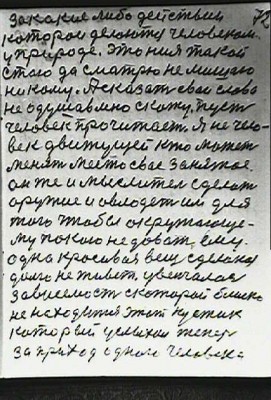 за какие либо действия
которое делают человеком
у природе. Это ния такой
стою да сматрю не мишаю
никому. А сказать свои слова
не одушавмно скожу, пуст
человек прочитает. Я не чело-
век движущей кто может
менят место свае занятое.
он же и мыслител сделат
оружие и овлодет им для
того чтобы окружающе-
му покою не доват, ему.
одна красивая вещ сделана
долго не живет,
зависемост с которой блиско
не находится этот кустик
который услихал
за приход одного человека